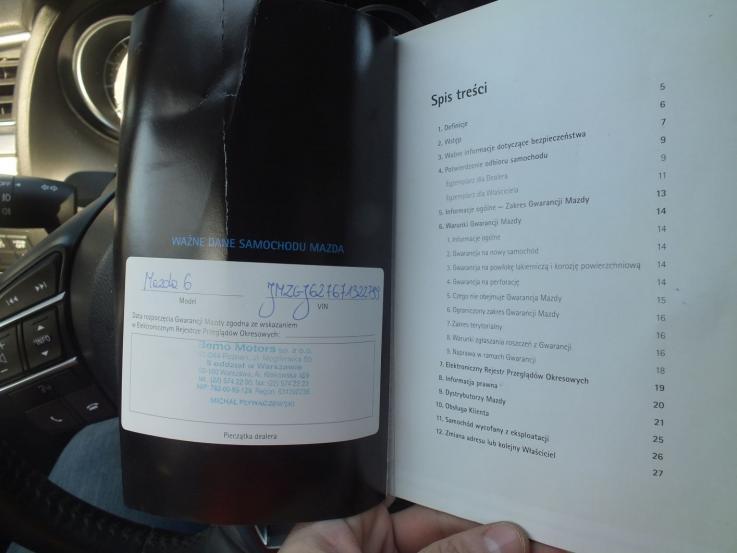 WAŻNE DANE SAMOCHODU MAZDA
Mazda 6
Model
VIN
Data rozpoczęcia Gwarancji Mazdy zgodna ze wskazaniem
w Elektronicznym Rejestrze Przeglądów Okresowych:
Bemo Motors sp. z o.o.
5 oddział w Warszawie
MICHAŁ PŁYWACZEWSKI
Pieczątka dealera
INFO
Spis treści
1. Definicje 5
2. Wstęp 6
3. Ważne informacje dotyczące bezpieczeństwa 7
4. Potwierdzenie odbioru samochodu 9
Egzemplarz dla Dealera 9
Egzemplarz dla Właściciela 11
5. Informacje ogólne — Zakres Gwarancji Mazdy 13
6. Warunki Gwarancji Mazdy 14
1. Informacje ogólne 14
2. Gwarancja na nowy samochód 14
3. Gwarancja na powłokę lakierniczą i korozję powierzchniową 14
4. Gwarancja na perforację 14
5. Czego nie obejmuje Gwarancja Mazdy 15
6. Ograniczony zakres Gwarancji Mazdy 16
7. Zakres terytorialny 16
8. Warunki zgłaszania roszczeń z Gwarancji 16
9. Naprawa w ramach Gwarancji 18
7. Elektroniczny Rejestr Przeglądów Okresowych 19
8. Informacja prawna 20
9. Dystrybutorzy Mazdy 21
10. Obsługa Klienta 25
11. Samochód wycofany z eksploatacji 26
12. Zmiana adresu lub kolejny Właściciel 27